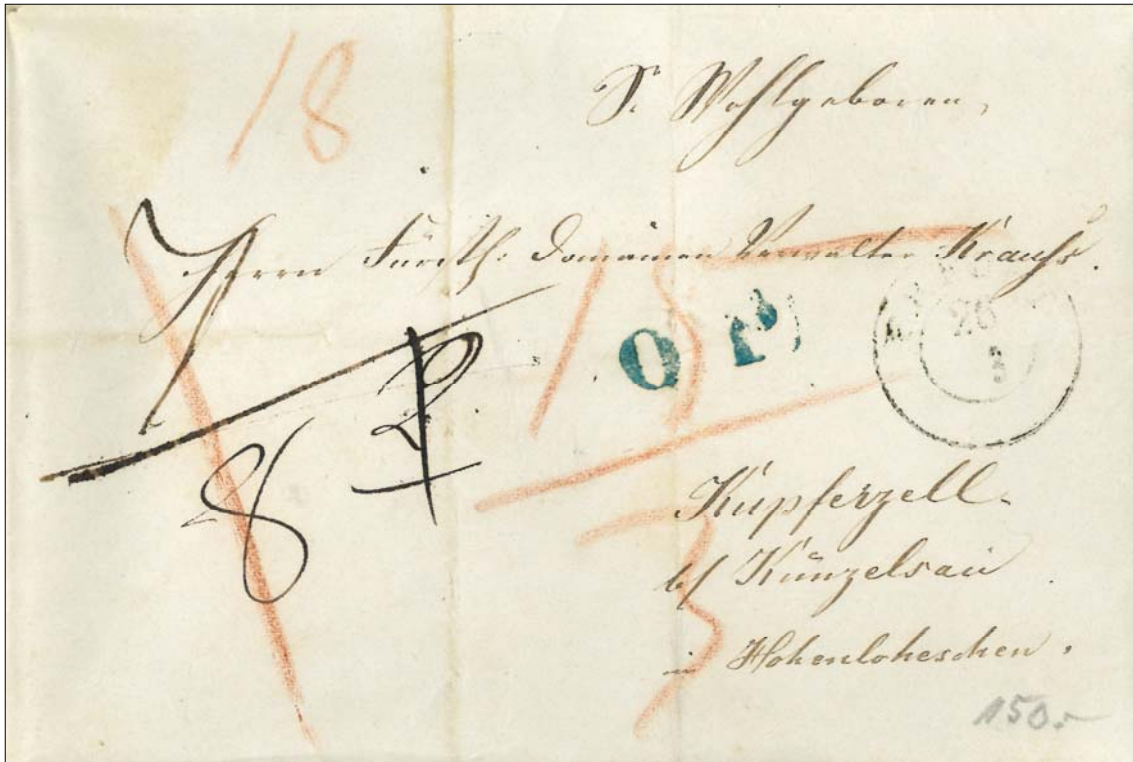 18
Sr. Wohlgeboren,
Herrn Fürstl: Domainen Verwalter Krauß.
15
O P.
26
3
8
Kupferzell.
b/ Künzelsau
in Hohenloheschen.
3
150.-